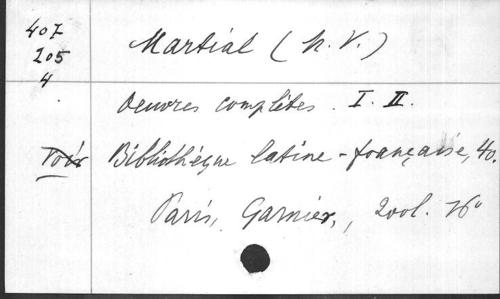 407
205
4
Martial (h. V.)
Oeuvres complètes. I. II.
Voir Bibliothéque latine-française, 40.
Paris, Garnier, 2vol. 16°